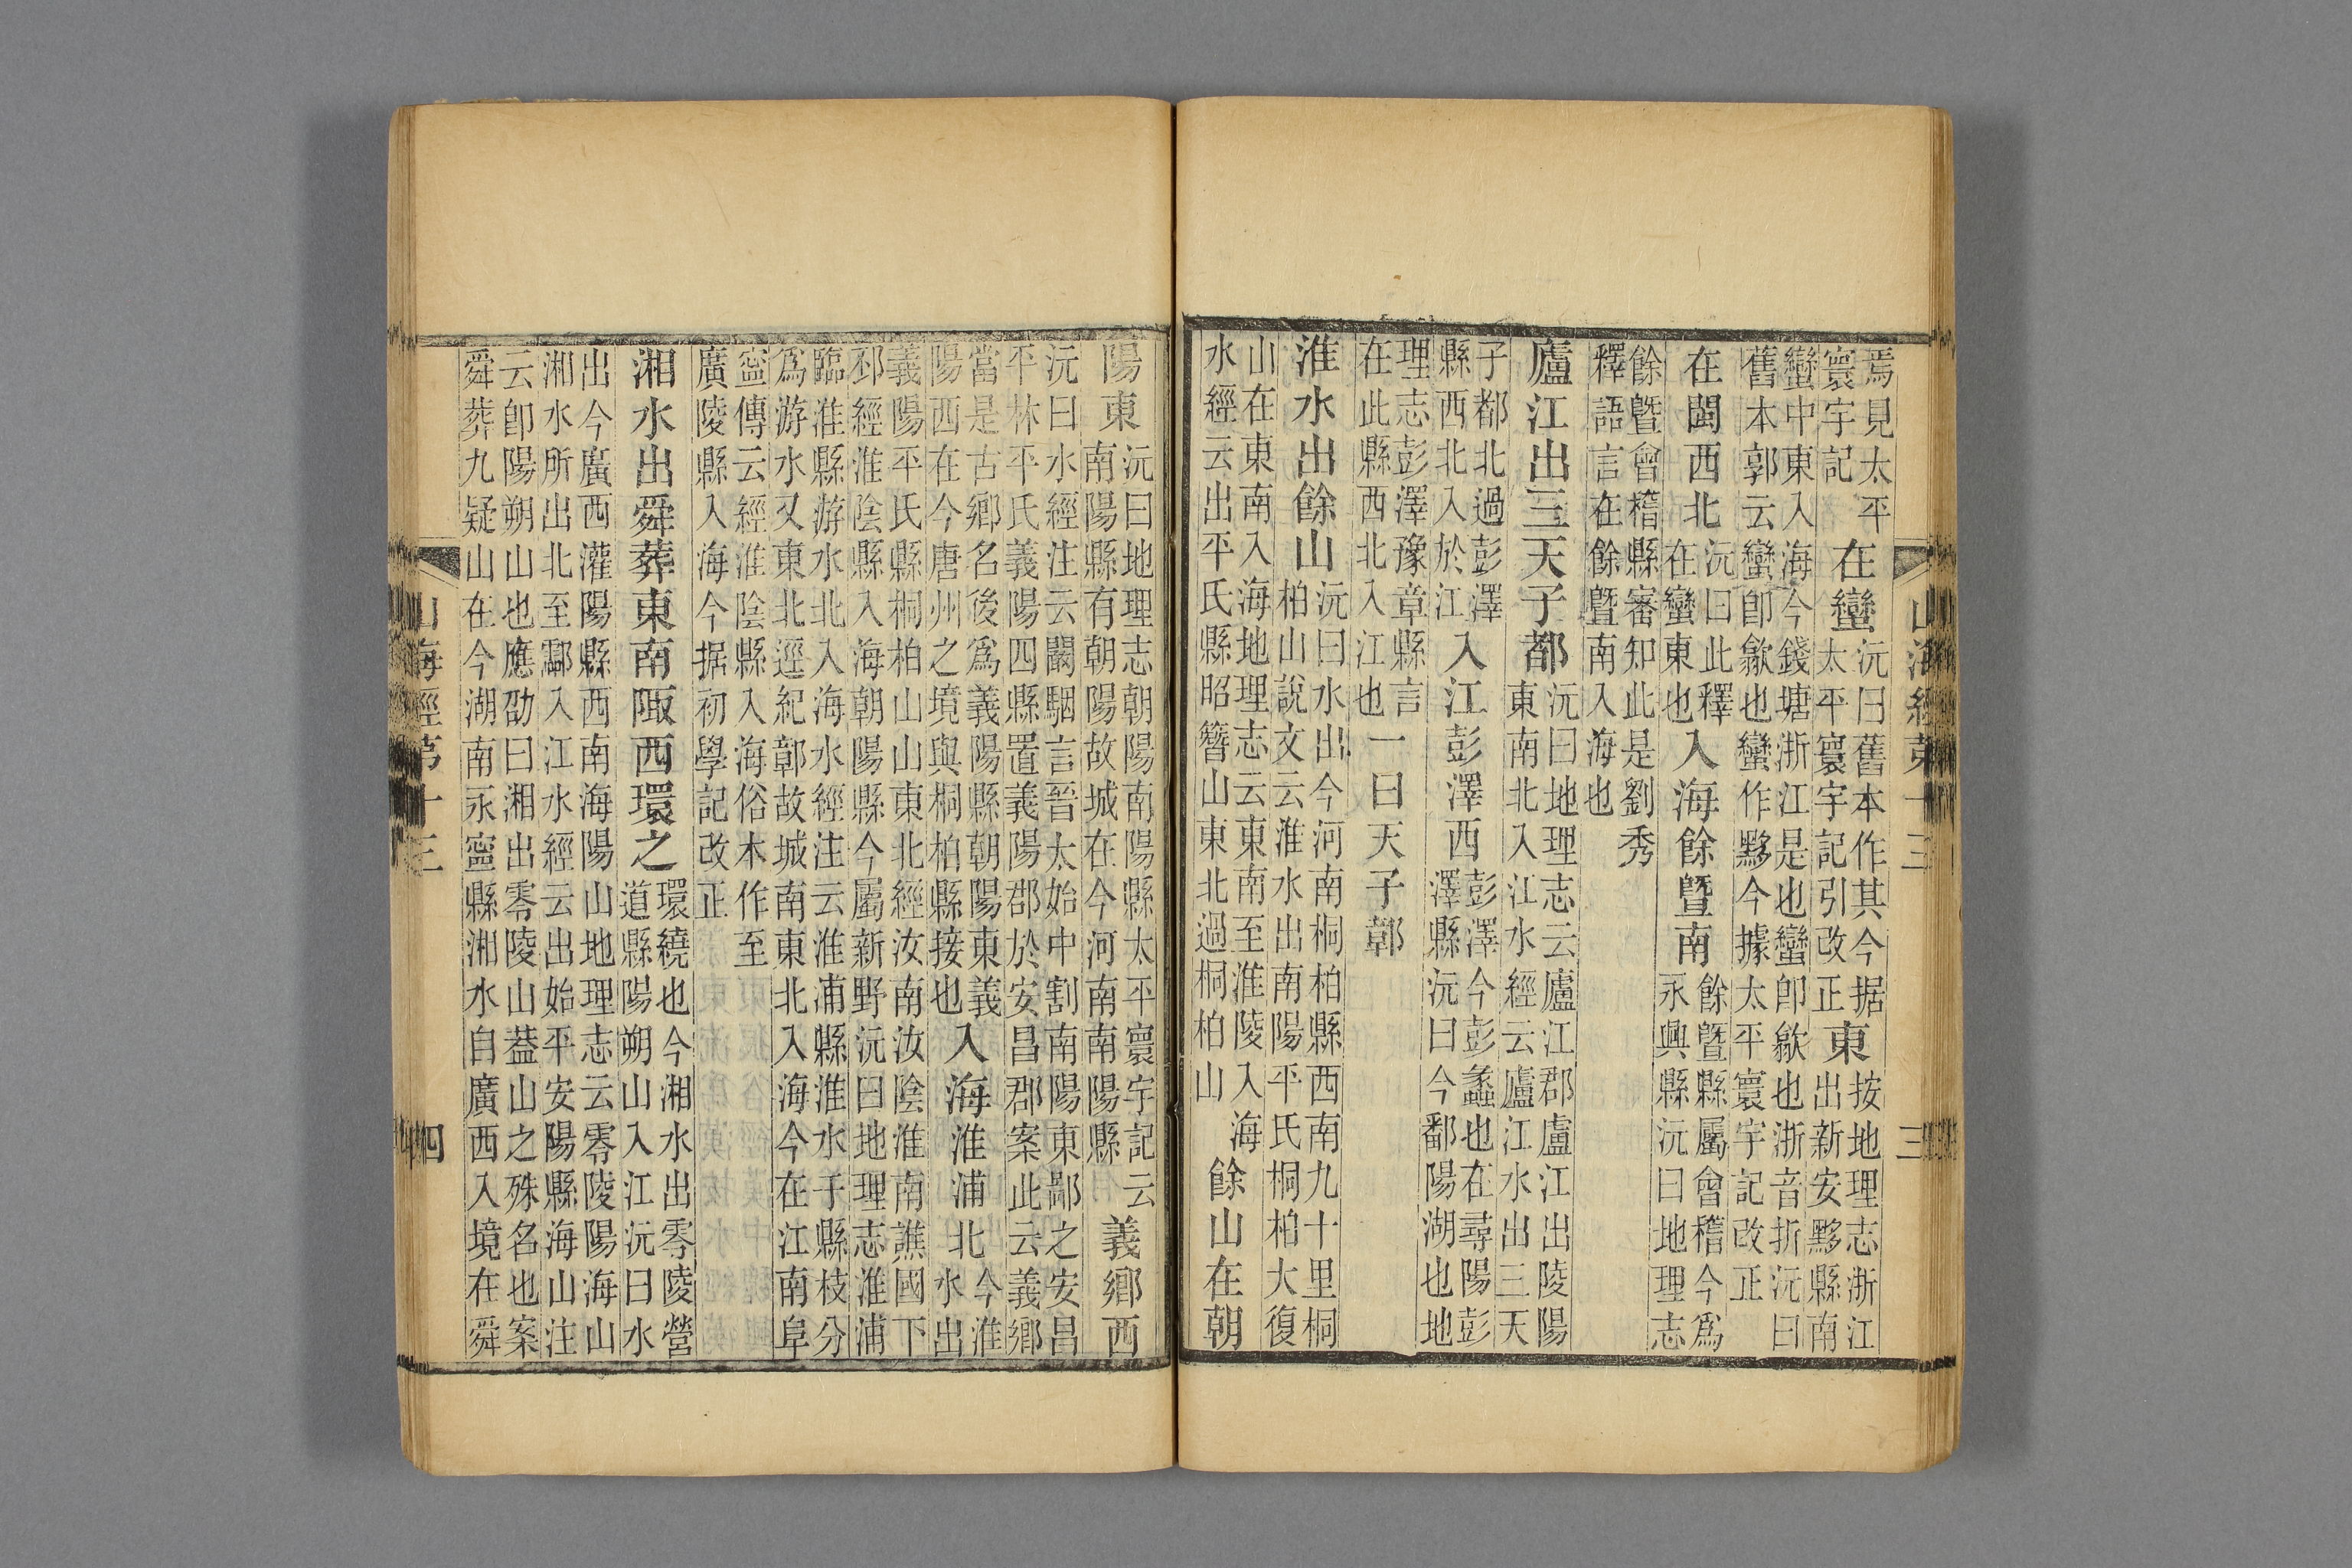 焉見太平寰宇記在蠻沅曰舊本作其今据太平寰宇記引改正東按地理志浙江出新安黟縣南
蠻中東入海今錢塘浙江是也蠻卽歙也浙音折沅曰舊本郭云蠻卽歙也蠻作黟今據太平寰宇記改正
在閩西北沅曰此釋在蠻東也入海餘暨南餘暨縣屬會稽今爲永興縣沅曰地理志
餘暨會稽縣審知此是劉秀釋語言在餘暨南入海也
廬江出三天子都沅曰地理志云廬江郡廬江出陵陽東南北入江水經云廬江水出三天
子都北過彭澤縣西北入於江入江彭澤西彭澤今彭蠡也在尋陽彭澤縣沅曰今鄱陽湖也地
理志彭澤豫章縣言在此縣西北入江也一曰天子鄣
淮水出餘山沅曰水出今河南桐柏縣西南九十里桐柏山說文云淮水出南陽平氏桐柏大復
山在東南入海地理志云東南至淮陵入海水經云出平氏縣昭簪山東北過桐柏山餘山在朝
山海經第十三
三
陽東沅曰地理志朝陽南陽縣太平寰宇記云南陽縣有朝陽故城在今河南南陽縣義鄉西
沅曰水經注云闞駰言晉太始中割南陽東鄙之安昌平林平氏義陽四縣置義陽郡於安昌郡案此云義鄉
當是古鄉名後爲義陽縣朝陽東義陽西在今唐州之境與桐柏縣接也入海淮浦北今淮水出
義陽平氏縣桐柏山山東北經汝南汝陰淮南譙國下邳經淮陰縣入海朝陽縣今屬新野沅曰地理志淮浦
臨淮縣游水北入海水經注云淮浦縣淮水于縣枝分爲游水又東北逕紀鄣故城南東北入海今在江南阜
寍傳云經淮陰縣入海俗本作至廣陵縣入海今据初學記改正
湘水出舜葬東南陬西環之環繞也今湘水出零陵營道縣陽朔山入江沅曰水
出今廣西灌陽縣西南海陽山地理志云零陵陽海山湘水所出北至酃入江水經云出始平安陽縣海山注
云卽陽朔山也應劭曰湘出零陵山葢山之殊名也案舜葬九疑山在今湖南永寍縣湘水自廣西入境在舜
山海經第十三
四